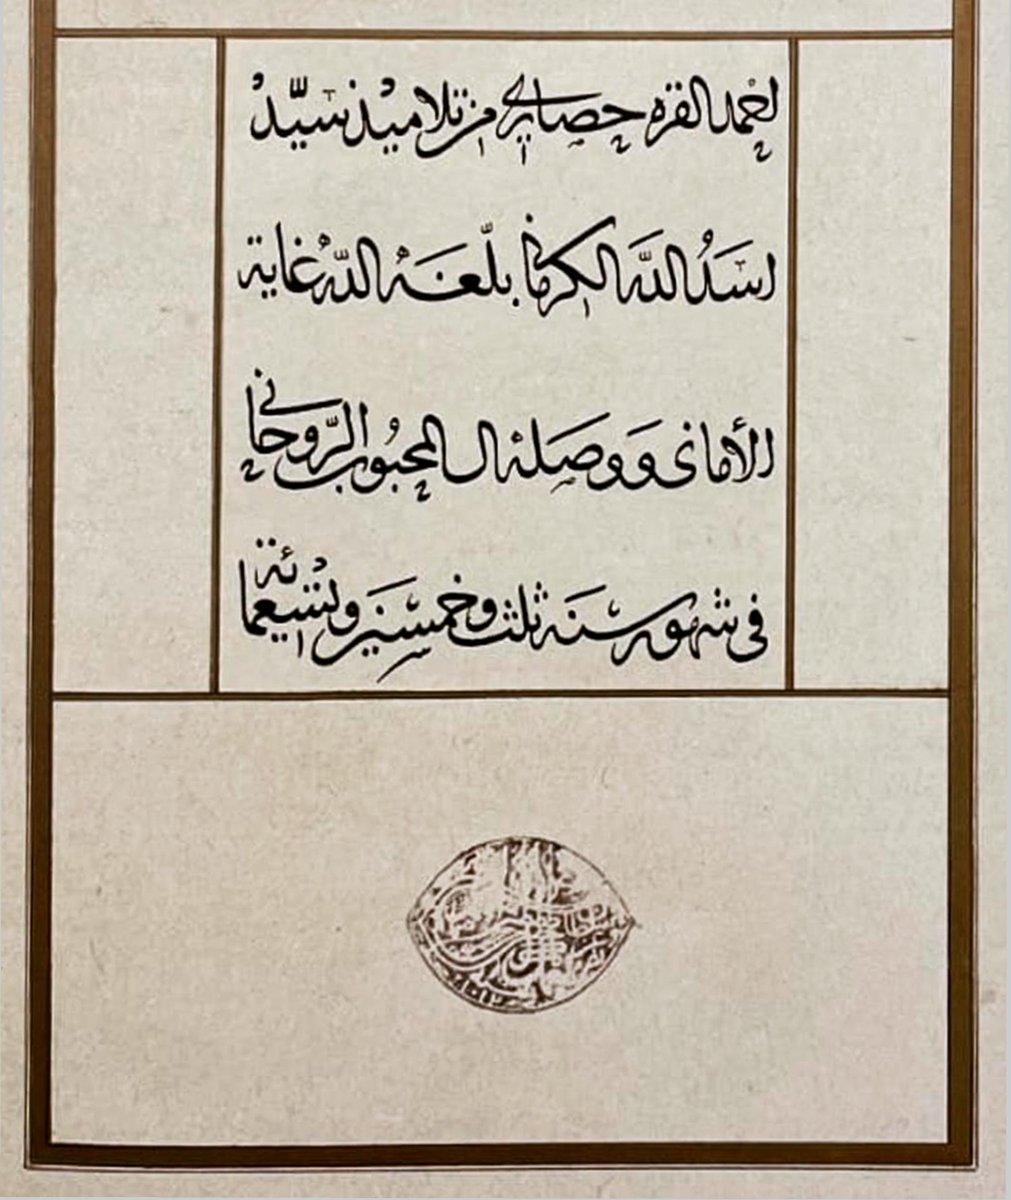 احمد القره حصاري من تلاميذ سيّد
اسَدُ اللّه الكرماني بلّغهُ اللّهُ غاية
الأماني ووصله الى المحبوب الرّوحاني
في شهور سنة ثلث وخمسين وتسعمائة